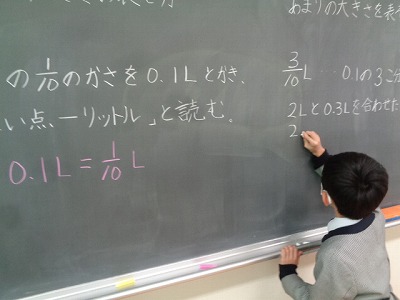 の1/10のかさを0.1Lとかき、
い点一リットル」と読む。
0.1L=1/10 L
あまりの大きさを表
3/10 L…0.1の3こ分
2Lと0.3Lを合わせた
2.